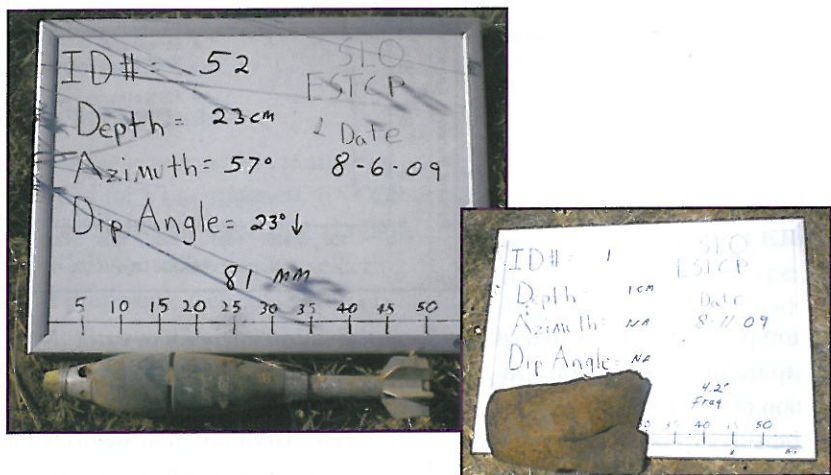 ID#: 52 SLO
ESTCP
Depth = 23cm
Date
Azimuth = 57° 8-6-09
Dip Angle = 23° ↓
81 mm
5 10 15 20 25 30 35 40 45 50
ID#: 1 SLO
ESTCP
Depth: 1cm Date
Azimuth: NA 8-11-09
Dip Angle: NA
4.2"
Frag
35 40 45 50